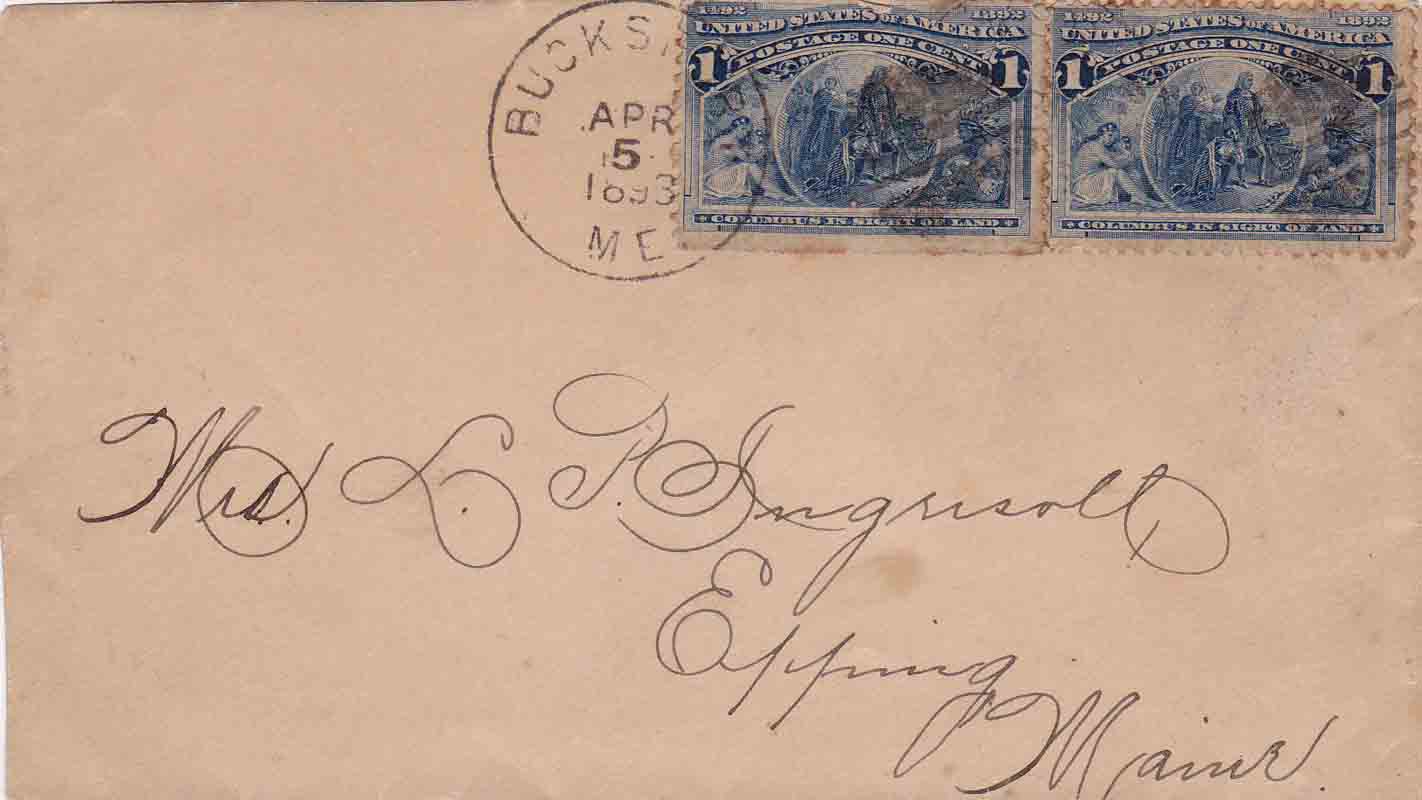 BUCKS
APR
5
1893
ME
1492 1892
UNITED STATES OF AMERICA
POSTAGE ONE CENT
1 1
COLUMBUS IN SIGHT OF LAND
1492 1892
UNITED STATES OF AMERICA
POSTAGE ONE CENT
1 1
COLUMBUS IN SIGHT OF LAND
Mrs. L. P. Ingrisolt
Epping
Maine.